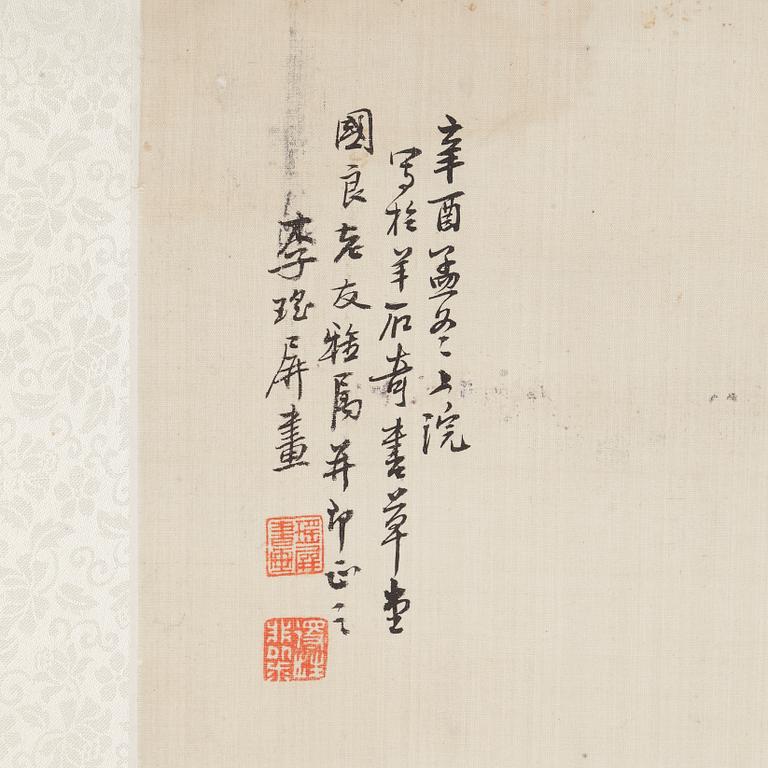 辛酉孟冬上浣
写於羊石奇書草堂
國良老友雅屬并即正之
李瑤屏畫
瑤屏書画